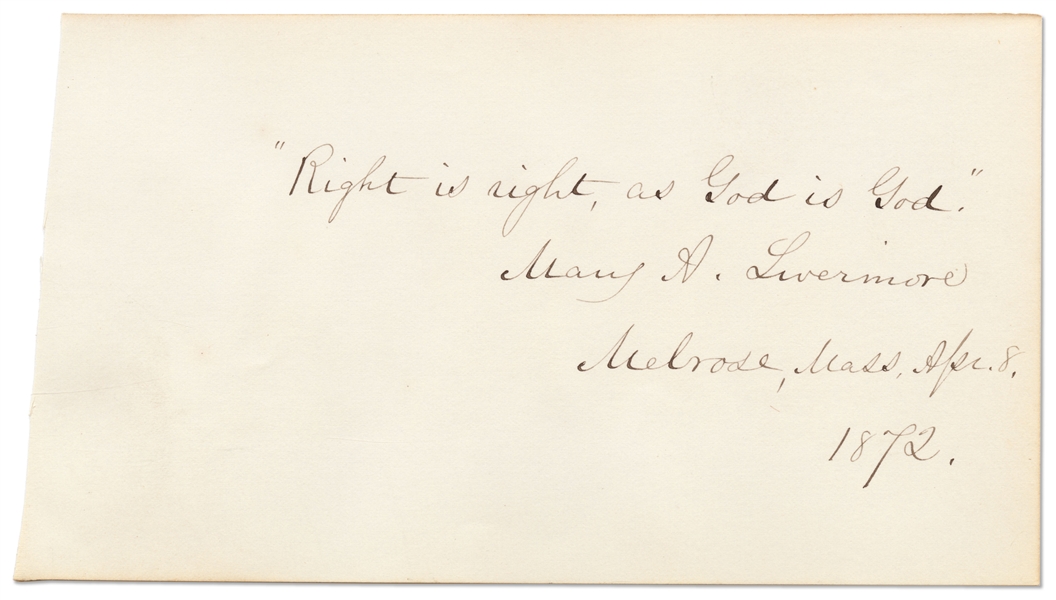 "Right is right, as God is God."
Mary A. Livermore
Melrose, Mass, Apr. 8.
1872.